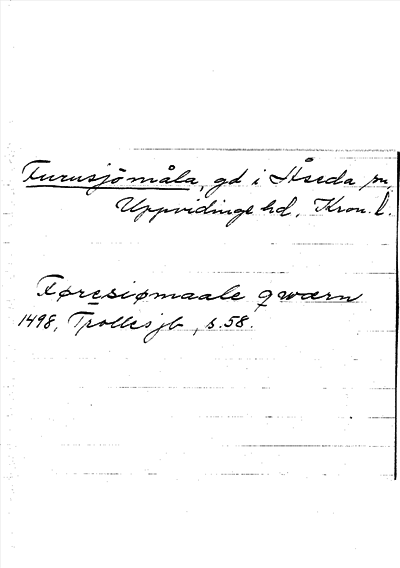 Furusjömåla, gd i Åseda sn,
Uppvidinge hd, Kron. l.
Føresiømaale qwærn
1498, Trolles jb, s. 58.